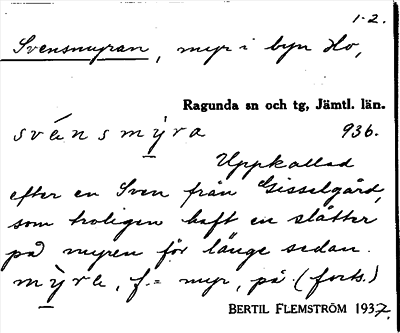 1-2.
Svensmyran, myr i byn Ho,
Ragunda sn och tg, Jämtl. län.
svénsmỳra 936.
Uppkallad
efter en Sven från Gisselgård,
som troligen haft en slåtter
på myren för länge sedan.
mỳrɐ, f. = myr, på (forts.)
BERTIL FLEMSTRÖM 1937.